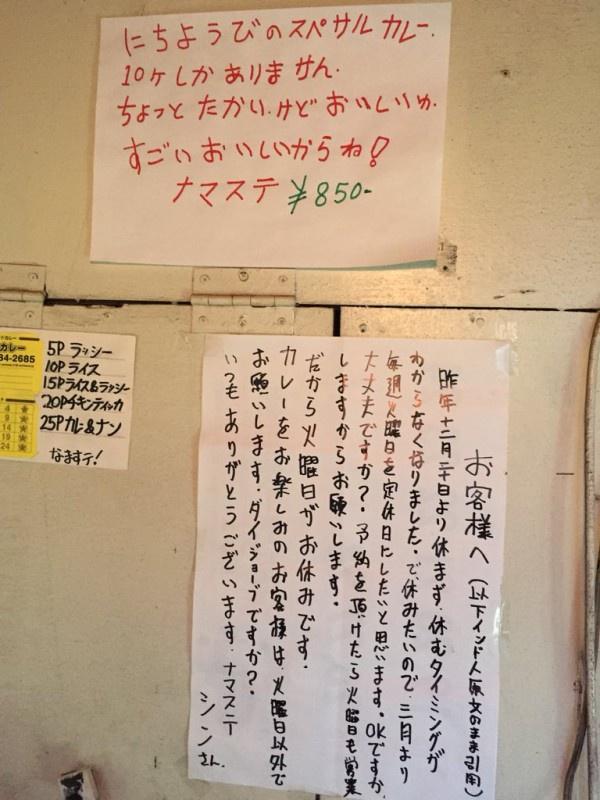 にちようびのスペサルカレー.
10ヶしかありません.
ちょっとたかい.けどおいしいゅ.
すごいおいしいからね!
ナマステ ¥850-
カレー
84-2685
4
9
14
19
24
5P ラッシー
10P ライス
15Pライス&ラッシー
20Pチキンティッカ
25Pカレー&ナン
なますテ!
お客様へ(以下インド人原文のまま引用)
昨年十二月二十日より休まず.休むタイミングが
わからなくなりました。で、休みたいので、三月より
毎週火曜日を定休日にしたいと思います。OKですか.
大丈夫ですか?.予約を頂けたら火曜日も営業
しますからお願いします。
だから火曜日がお休みです.
カレーをお楽しみのお客様は.火曜日以外で
お願いします.ダイジョーブですか?.
いつもありがとうございます.ナマステ
シンさん.